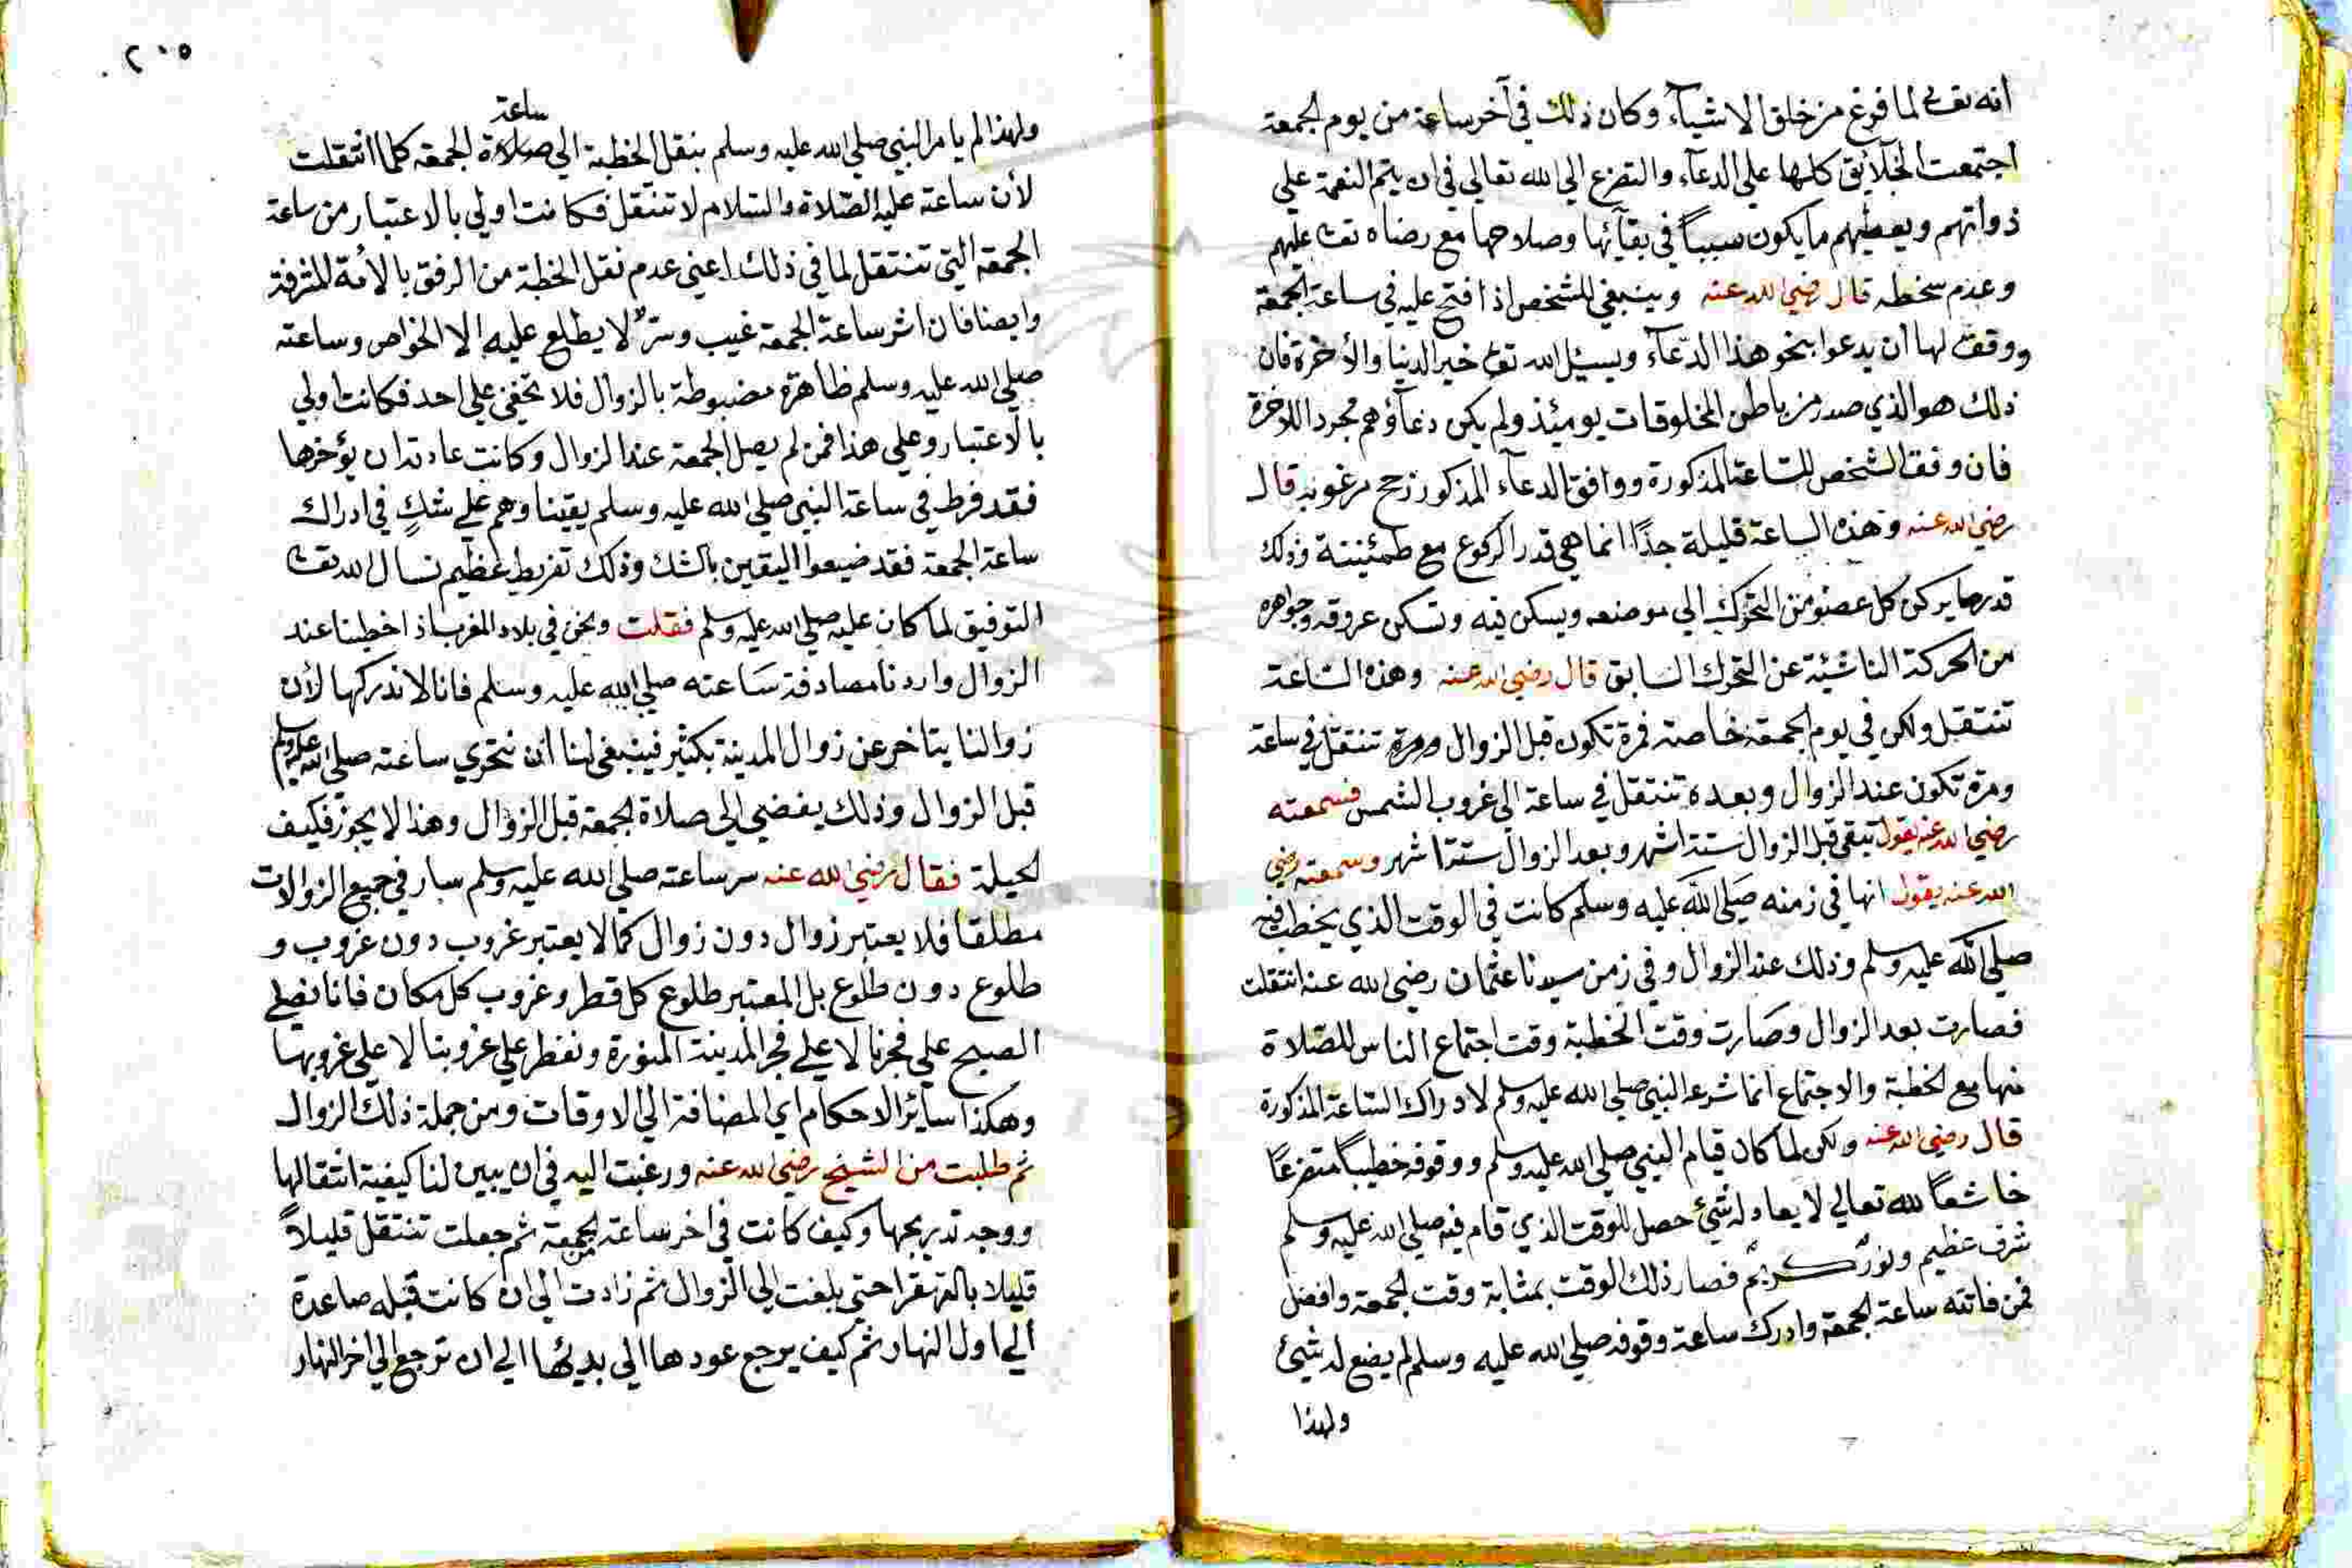 انه تعالى لما فرغ من خلق الاشيآء وكان ذلك في آخر ساعة من يوم الجمعة
اجتمعت الخلآئق كلها علي الدعآء والتضرع الي الله تعالي في ان يتم النعمة علي
ذواتهم ويعطيهم ما يكون سبباً في بقآئها وصلاحها مع رضاه تعا عليهم
وعدم سخطه قال رضي الله عنه وينبغي للشخص اذا فتح عليه في ساعة الجمعة
ووقف لها أن يدعوا بنحو هذا الدّعآء ويسئل الله تعا خير الدنيا والأخرة فان
ذلك هو الذي صدر من باطن المخلوقات يومئذ ولم يكن دعآؤهم مجرد اللاخرة
فان وفق الشخص للساعة المذكورة ووافق الدعآء المذكور نجح مرغوبه قال
رضي الله عنه وهذه الساعة قليلة جدًا انما هي قدر الركوع مع طمئنينة وذلك
قدر ما يركن كل عضو من التحرك الي موضعه ويسكن فيه وتسكن عروقه وجواهره
من الحركة الناشئية عن التحرك السابق قال رضي الله عنه وهذه الساعة
تنتقل ولكن في يوم الجمعة خاصة فمرة تكون قبل الزوال ومرة تنتقل في ساعة
ومرة تكون عند الزوال وبعده تنتقل في ساعة الي غروب الشمس فسمعته
رضي الله عنه يقول تبقي قبل الزوال ستة اشهر وبعد الزوال ستة اشهر وسمعته رضي
الله عنه يقول انها في زمنه صلي الله عليه وسلم كانت في الوقت الذي يخطب فيه
صلي الله عليه وسلم وذلك عند الزوال وفي زمن سيدنا عثمان رضي الله عنه انتقلت
فصارت بعد الزوال وصارت وقت الخطبة وقت اجتماع الناس للصلاة
منها مع الخطبة والاجتماع انما شرعه النبي صلي الله عليه وسلم لادراك الساعة المذكورة
قال رضي الله عنه ولكن لما كان قيام النبي صلي الله عليه وسلم ووقوفه خطيباً متضرعًا
خاشعاً لله تعالي لا يعادله شئ حصل للوقت الذي قام فيه صلي الله عليه وسلم
شرف عظيم ونورٌ كريم فصار ذلك الوقت بمثابة وقت الجمعة وافضل
فمن فاتته ساعة الجمعة وادرك ساعة وقوفه صلي الله عليه وسلم لم يضع له شئ
ولهذا
٢٠٥
ساعة
ولهذا لم يامر النبي صلي الله عليه وسلم بنقل الخطبة الي صلاة الجمعة كلما انتقلت
لأن ساعة عليه الصّلاة والسّلام لا تنتقل فكانت اولي بالاعتبار من ساعة
الجمعة التي تنتقل لما في ذلك اعني عدم نقل الخطبة من الرفق بالأمة المشرفة
وايضا فان اشر ساعة الجمعة غيب وسرٌ لا يطلع عليه الا الخواص وساعته
صلي الله عليه وسلم ظاهرة مضبوطة بالزوال فلا تخفي علي احد فكانت اولي
بالاعتبار وعلي هذا فمن لم يصل الجمعة عند الزوال وكانت عادته ان يؤخرها
فقد فرط في ساعة النبي صلي الله عليه وسلم يقينا وهم علي شكٍ في ادراك
ساعة الجمعة فقد ضيعوا اليقين بالشك وذلك تفريط عظيم نسال الله تعا
التوفيق لما كان عليه صلي الله عليه وسلم فقلت ونحن في بلاد المغرب اذا خطبنا عند
الزوال واردنا مصادفة ساعته صلي الله عليه وسلم فانا لا ندركها لأن
زوالنا يتاخر عن زوال المدينة بكثير فينبغي لنا أن نتحري ساعته صلي الله عليه وسلم
قبل الزوال وذلك يفضي الي صلاة الجمعة قبل الزوال وهذا لا يجوز فكيف
الحيلة فقال رضي الله عنه سر ساعته صلي الله عليه وسلم سار في جميع الزوالات
مطلقا فلا يعتبر زوال دون زوال كما لا يعتبر غروب دون غروب و
طلوع دون طلوع بل المعتبر طلوع كل قطر وغروب كل مكان فانا نصلي
الصبح علي فجرنا لا علي فجر المدينة المنورة ونفطر علي غروبنا لا علي غروبها
وهكذا سائر الاحكام اي المضافة الي الاوقات ومن جملة ذلك الزوال
ثم طلبت من الشيخ رضي الله عنه ورغبت اليه في ان يبين لنا كيفية انتقالها
ووجه تدريجها وكيف كانت في اخر ساعة الجمعة ثم جعلت تنتقل قليلاً
قليلا بالقهقرا حتي بلغت الي الزوال ثم زادت الي ان كانت قبله صاعدة
الي اول النهار ثم كيف يرجع عودها الي بديُها الي ان ترجع الي اخر النهار